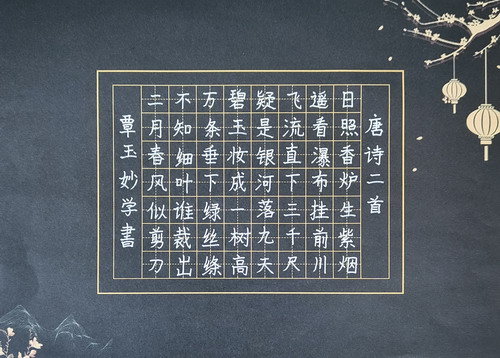 唐诗二首
日照香炉生紫烟
遥看瀑布挂前川
飞流直下三千尺
疑是银河落九天
碧玉妆成一树高
万条垂下绿丝绦
不知细叶谁裁出
二月春风似剪刀
覃玉妙学書